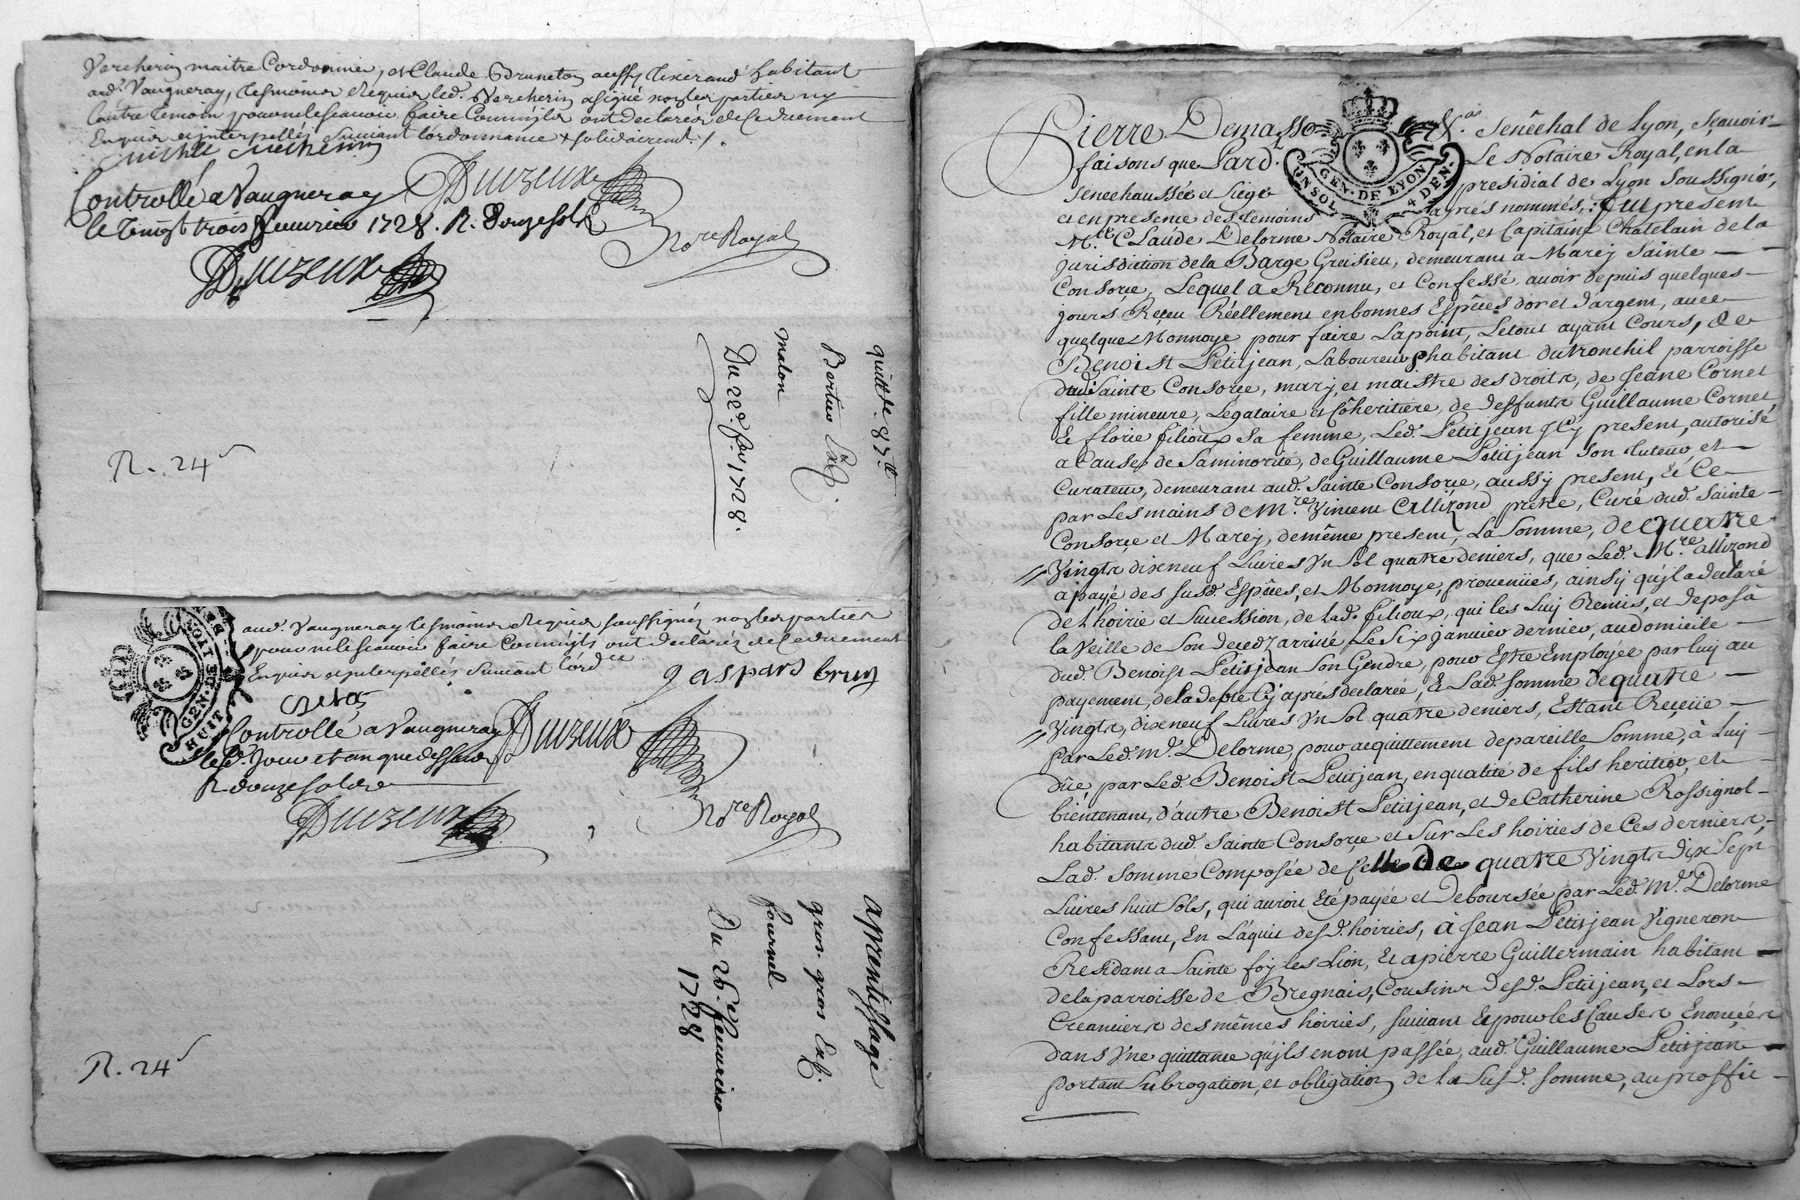 Vercherin maitre Cordonnier, et Claude Bruneton aussy tixerand habitant
aud. Vaugneray, tesmoins requis led. Vercherin a signé non les parties ny
l'autre temoin pour ne le scauoir faire Comm'ils ont declarés de Ce duement
Enquis et interpellés suiuant lordonnance + solidairemt. /.
michel vercherin
Controllé a Vaugneray
le vingt trois feurier 1728. R. Douze sols
Duizeux
Nore. Royal
Duizeux
quitt.ce 87tt
Bertier Exp.
maton
Du 22e. fev. 1728.
R. 24s
HUIT GEN. DE LYON DE
aud. Vaugneray tesmoins requis soussignés non les parties
pour ne le scauoir faire Comm'ils ont declarés de Ce duement
Enquis et interpellés Suiuant lord.ce
gaspard brun
Controllé a Vaugneray
led. Jour et an que dessus
R douze sols
Duizeux
Nore. Royal
Duizeux
apprentissage
gros. gros Exp.
fournel
Du 26e. feurier
1728
R. 24s
GEN. DE LYON 4 DEN. UN SOL
Pierre Demasso Senêchal de Lyon, sçauoir
faisons que Pard. Le Notaire Royal, en la
senechaussée et siège presidial de Lyon soussigné,
et en presence des temoins apres nommés, : fut present
M.re Claude Delorme Notaire Royal, et Capitaine Chatelain de la
jurisdiction de la Barge Greisieu, demeurant a Marcy Sainte
Consorçe, Lequel a Reconnu, et Confessé auoir depuis quelques
jours Reçeu Réellement en bonnes Espêces dor et dargent, auec
quelque Monnoye pour faire Lapoint, Letout ayant Cours, De
Benoist Petitjean, Laboureur habitant du tronchil parroisse
dud. Sainte Consorçe, mary, et maistre des droits, de Jeane Cornet
fille mineure, Légataire et Cohéritiere, de deffunts Guillaume Cornet
Et florie filioux sa femme, Led. Petitjean jcy present, autorisé
a Cause de Saminorité, de Guillaume Petitjean Son tuteur, et
Curateur, demeurant aud. Sainte Consorçe, aussy present, Et Ce
par Les mains de M.re Vincent Callizond prêtre, Curé dud. Sainte
Consorçe et Marcy, demême present, La Somme, de quatre
Vingts dixneuf Livres Vn Sol quatre deniers, que Led. M.re allizond
a payé des susd. Espêces, et Monnoye, prouenües, ainsy qu'jl a declaré
de l'hoirie et succession, de lad. filioux, qui les Luy Remis, et deposa
la Veille de Son decedz arriué Le Six Januier dernier, au domicile
dud. Benoist Petitjean Son Gendre, pour Estre Employée par luy au
payement, de la depte Cy après declarée, Et Lad. somme de quatre
Vingts, dixneuf Livres Vn Sol quatre deniers, Estant Reçeüe
Par Led. M.e Delorme, pour acquittement de pareille Somme, à Luy
düe, par Led. Benoist Petitjean, en qualité de fils heritier, et
bientenant, d'autre Benoist Petitjean, et de Catherine Rossignol
habitants dud. Sainte Consorçe et Sur Les hoiries de Ces derniers,
Lad. Somme Composée de Celle de quatre Vingts dix sept
Livres huit Sols, qui auroit Eté payée et Deboursée par Led. M.e Delorme
Confessant, En Laquit desd. hoiries, à Jean Petitjean Vigneron
Residant a Sainte foy les Lion, Et a pierre Guillermain habitant
de la parroisse de Bregnais, Cousins desd. Petitjean, et Lors
Creanciers des mêmes hoiries, suiuant Et pour les Causes Enoncées
dans Vne quittance qu'jls en ont passée, aud. Guillaume Petitjean
portant Subrogation, et obligation de la Susd. Somme, au proffit